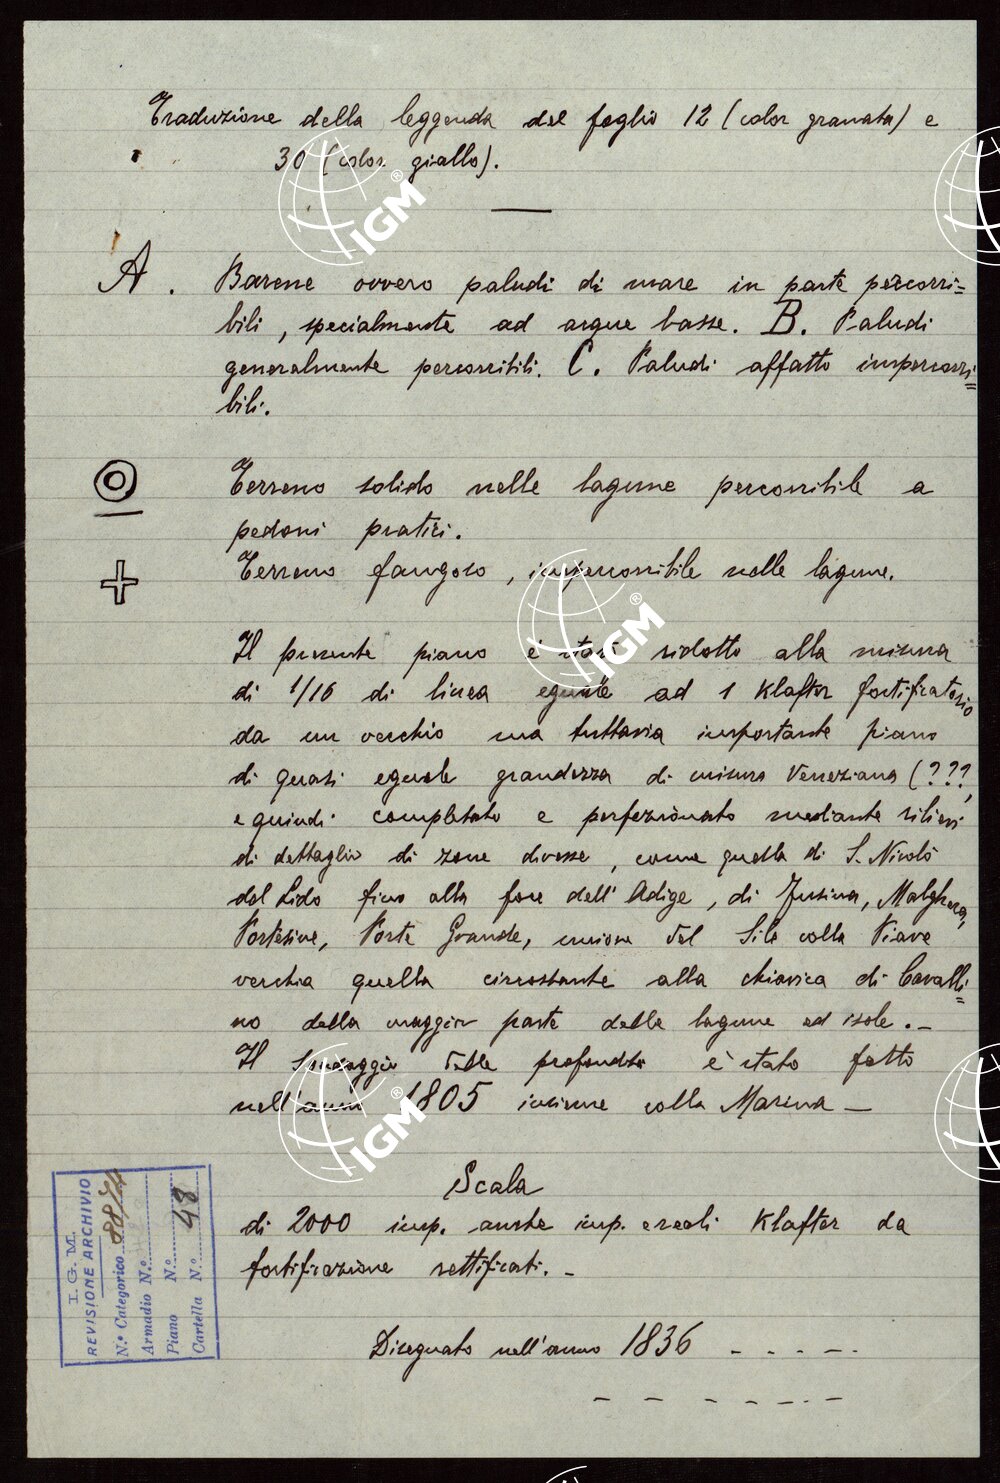 Traduzione della leggenda del foglio 12 (color granata) e
30 (color giallo).
A. Barene ovvero paludi di mare in parte percorri=
bili, specialmente ad acque basse. B. Paludi
generalmente percorribili. C. Paludi affatto impercorri=
bili.
Terreno solido nelle lagune percorribile a
pedoni pratici.
Terreno fangoso, impercorribile nelle lagune.
Il presente piano è stato ridotto alla misura
di 1/16 di linea eguale ad 1 Klafter fortificatorio
da un vecchio ma tuttavia importante piano
di quasi eguale grandezza di misura Veneziana (???,
e quindi completato e perfezionato mediante rilievi
di dettaglio di zone diverse, come quella di S. Nicolò
del Lido fino alla foce dell'Adige, di Fusina, Malghera,
Portesine, Porte Grande, unione del Sile colla Piave
vecchia quella circostante alla chiavica di Cavalli=
no della maggior parte delle lagune ed isole. _
Il sondaggio delle profondità è stato fatto
nell'anno 1805 insieme colla Marina _
Scala
di 2000 imp. anche imp. e reali Klafter da
fortificazione rettificati. _
Disegnato nell'anno 1836 - - - - -
- - - - - -
I. G. M.
REVISIONE ARCHIVIO
N.º Categorico
Armadio N.º
Piano N.º
Cartella N.º 48
IGM®
IGM®
IGM®